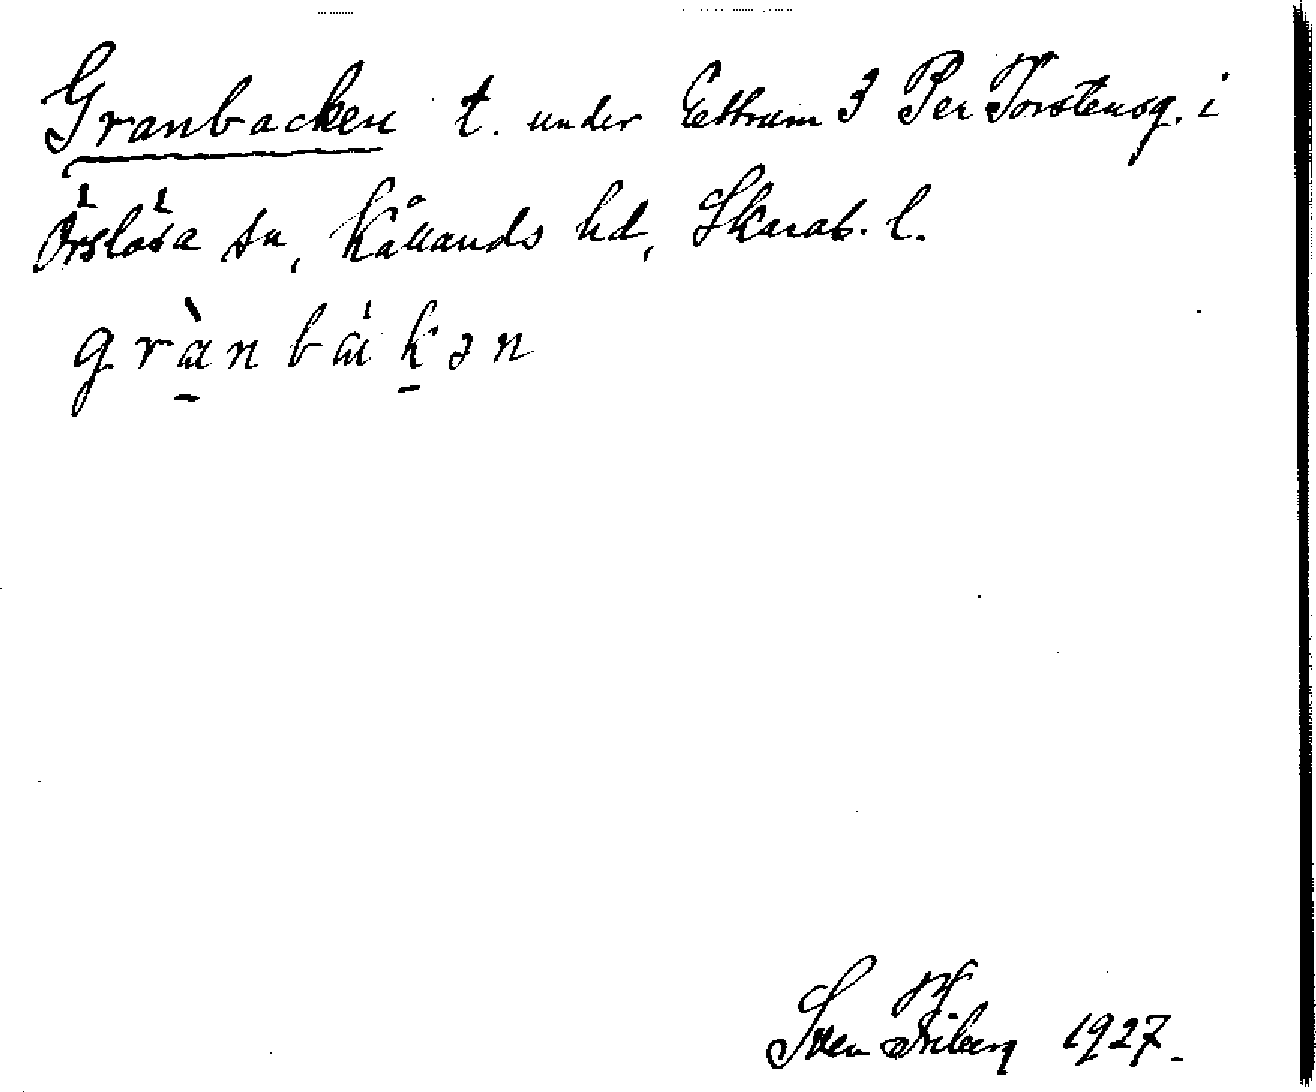 Granbacken t. under Ettrum 3 Per Torstensg. i
Örslösa sn, Kållands hd, Skarab. l.
grànbákən
Sven Friberg 1927.